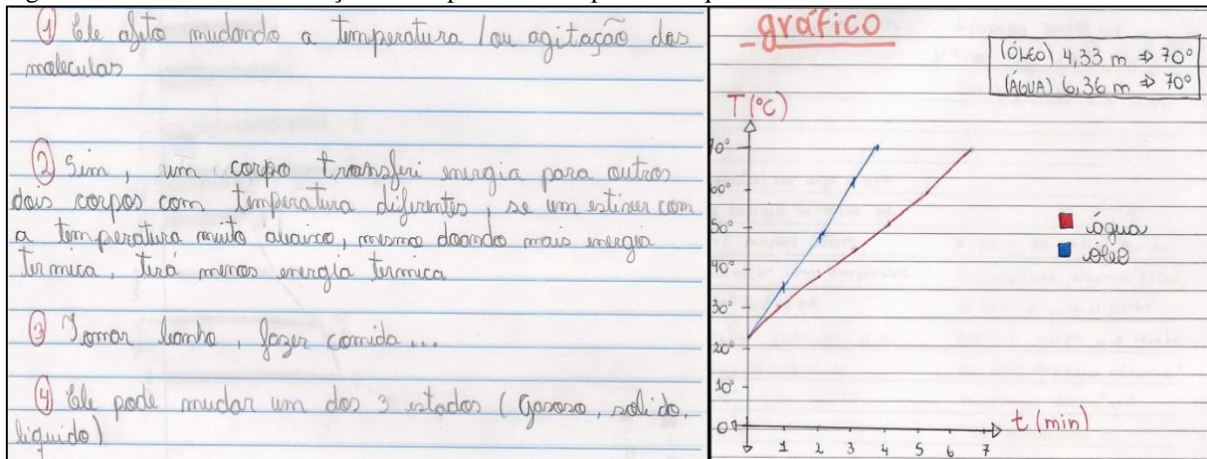 ① Ele afeta mudando a temperatura /ou agitação das
moleculas
② Sim, um corpo transferi energia para outros
dois corpos com temperatura diferentes, se um estiver com
a temperatura muito abaixo, mesmo doando mais energia
termica, terá menos energia termica
③ Tomar banho, fazer comida...
④ Ele pode mudar um dos 3 estados (gasoso, solido,
liquido)
gráfico
(ÓLEO) 4,33 m ⇒ 70°
(ÁGUA) 6,36 m ⇒ 70°
T(°C)
70°
60°
50°
40°
30°
20°
10°
0
1 2 3 4 5 6 7
t (min)
água
óleo